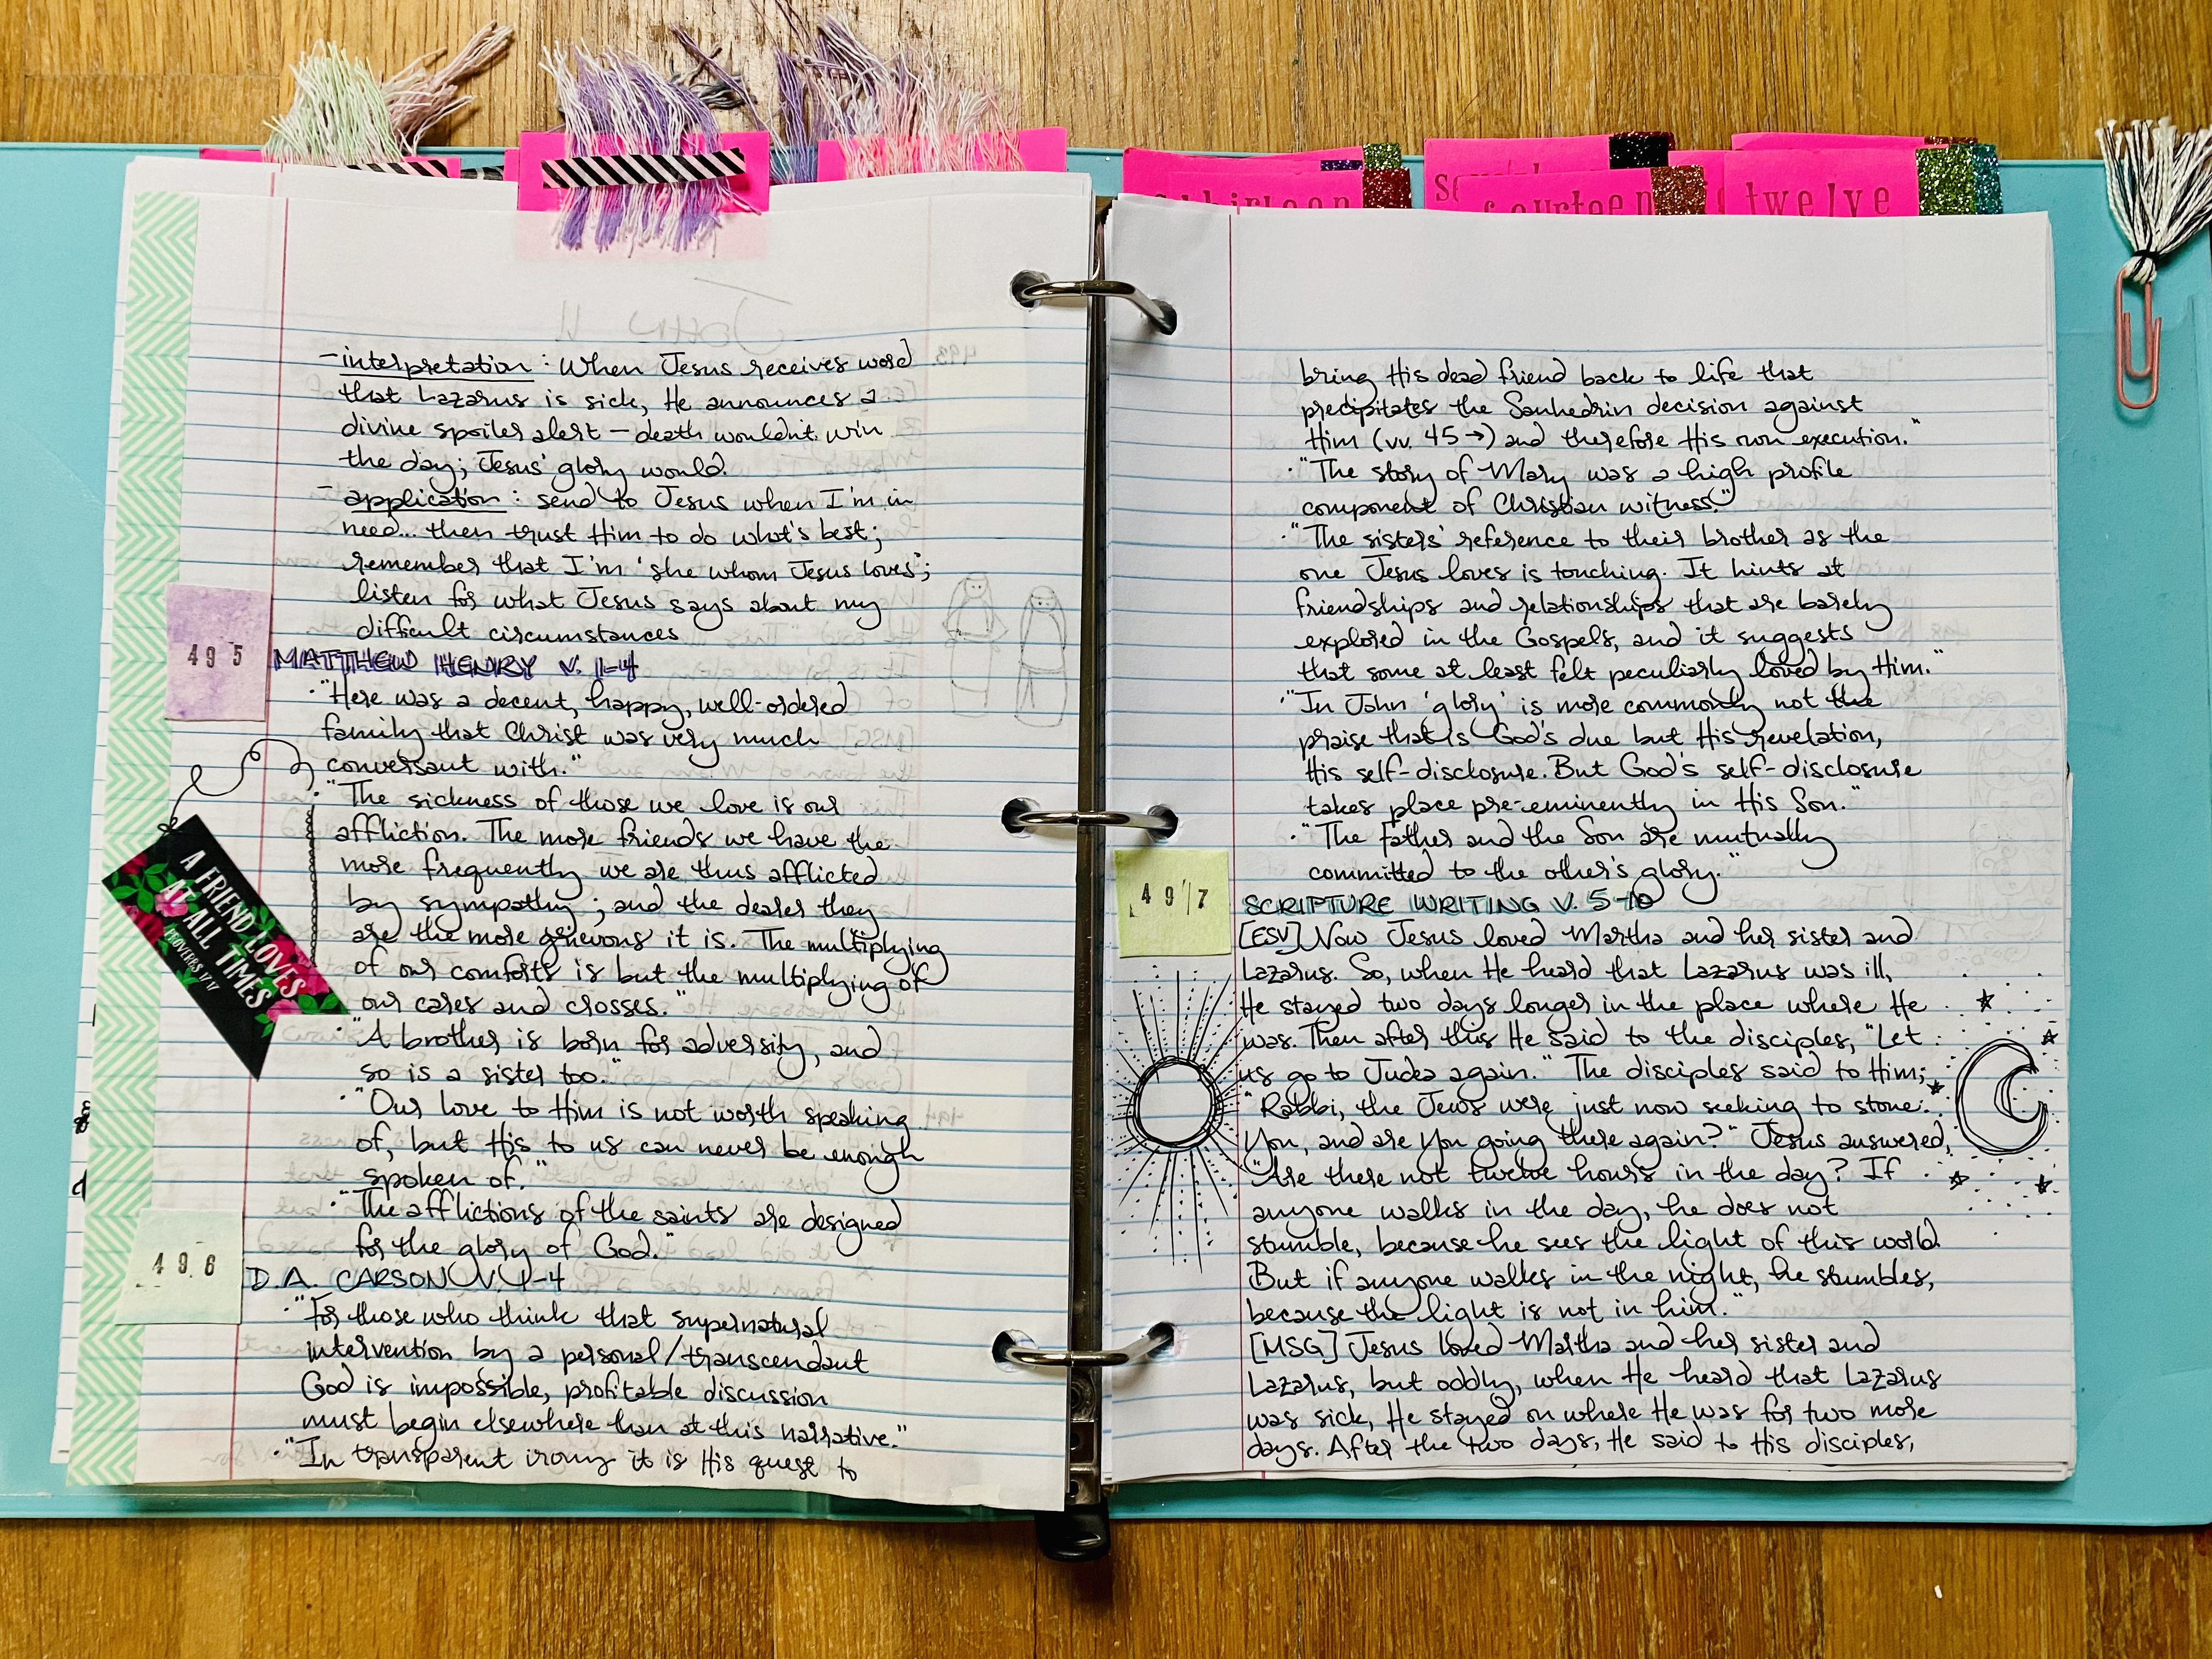 - interpretation : When Jesus receives word
that Lazarus is sick, He announces a
divine spoiler alert – death wouldn't win
the day; Jesus' glory would.
- application : send to Jesus when I'm in
need... then trust Him to do what's best;
remember that I'm 'she whom Jesus loves';
listen for what Jesus says about my
difficult circumstances
495
MATTHEW HENRY V. 1-4
• "Here was a decent, happy, well-ordered
family that Christ was very much
conversant with."
• "The sickness of those we love is our
affliction. The more friends we have the
more frequently we are thus afflicted
by sympathy; and the dearer they
are the more grievous it is. The multiplying
of our comforts is but the multiplying of
our cares and crosses."
• "A brother is born for adversity, and
so is a sister too."
• "Our love to Him is not worth speaking
of, but His to us can never be enough
spoken of."
• "The afflictions of the saints are designed
for the glory of God."
A FRIEND LOVES
AT ALL TIMES
PROVERBS 17:17
496
D.A. CARSON V. 1-4
• "For those who think that supernatural
intervention by a personal/transcendant
God is impossible, profitable discussion
must begin elsewhere than at this narrative."
• "In transparent irony it is His quest to
twelve
fourteen
bring His dead friend back to life that
precipitates the Sanhedrin decision against
Him (vv. 45→) and therefore His own execution."
• "The story of Mary was a high profile
component of Christian witness."
• "The sisters' reference to their brother as the
one Jesus loves is touching. It hints at
friendships and relationships that are barely
explored in the Gospels, and it suggests
that some at least felt peculiarly loved by Him."
• "In John 'glory' is more commonly not the
praise that is God's due but His revelation,
His self-disclosure. But God's self-disclosure
takes place pre-eminently in His Son."
• "The Father and the Son are mutually
committed to the other's glory."
497
SCRIPTURE WRITING V. 5-10
[ESV] Now Jesus loved Martha and her sister and
Lazarus. So, when He heard that Lazarus was ill,
He stayed two days longer in the place where He
was. Then after this He said to the disciples, "Let
us go to Judea again." The disciples said to Him;
"Rabbi, the Jews were just now seeking to stone
You, and are You going there again?" Jesus answered,
"Are there not twelve hours in the day? If
anyone walks in the day, he does not
stumble, because he sees the light of this world.
But if anyone walks in the night, he stumbles,
because the light is not in him."
[MSG] Jesus loved Martha and her sister and
Lazarus, but oddly, when He heard that Lazarus
was sick, He stayed on where He was for two more
days. After the two days, He said to His disciples,